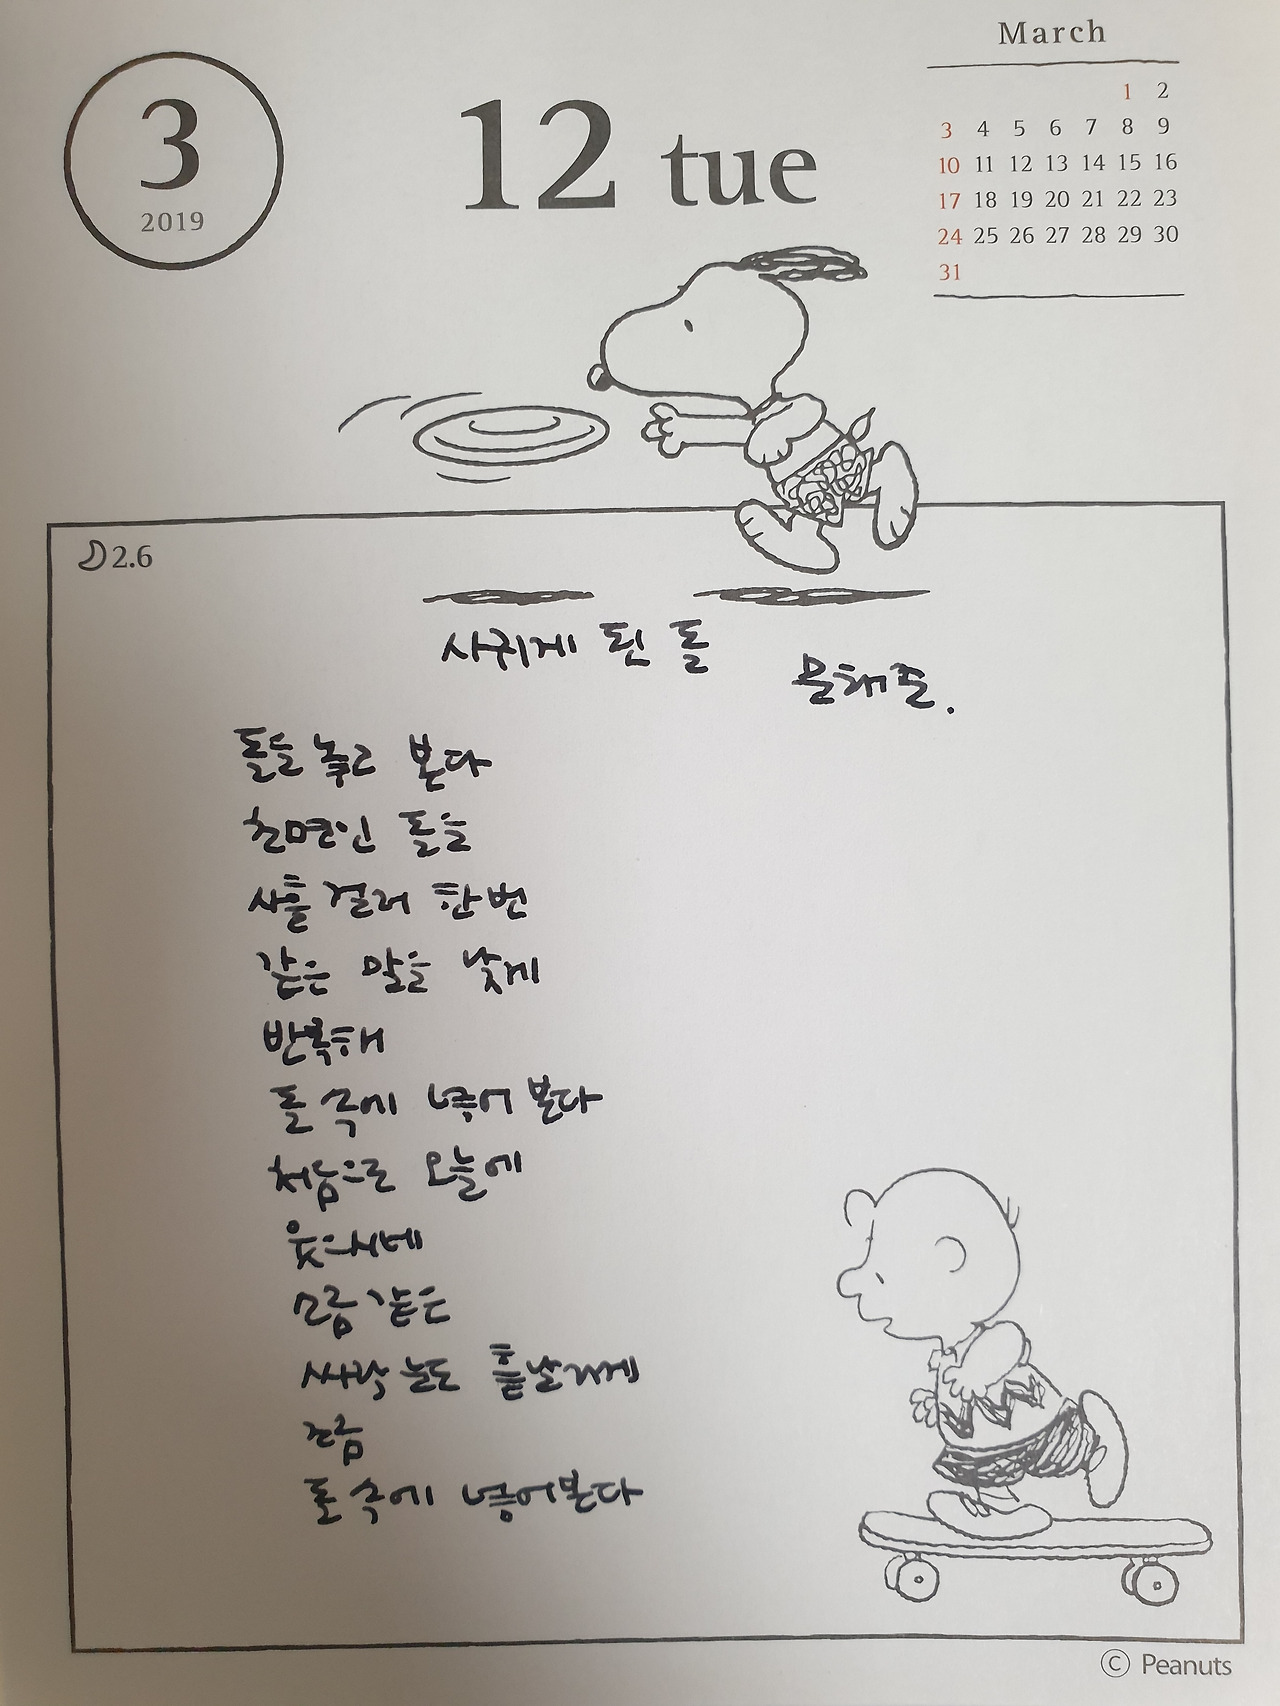 3
2019
12 tue
March
1 2
3 4 5 6 7 8 9
10 11 12 13 14 15 16
17 18 19 20 21 22 23
24 25 26 27 28 29 30
31
2.6
사귀게 된 돌
문해준.
돌을 놓고 본다
초면인 돌을
사흘 걸러 한 번
같은 말을 낮게
반복해
돌 속에 넣어 본다
처음으로 오늘에
웃으시네
소금 같은
싸락눈도 흩날리게
조금
돌 속에 넣어본다
© Peanuts